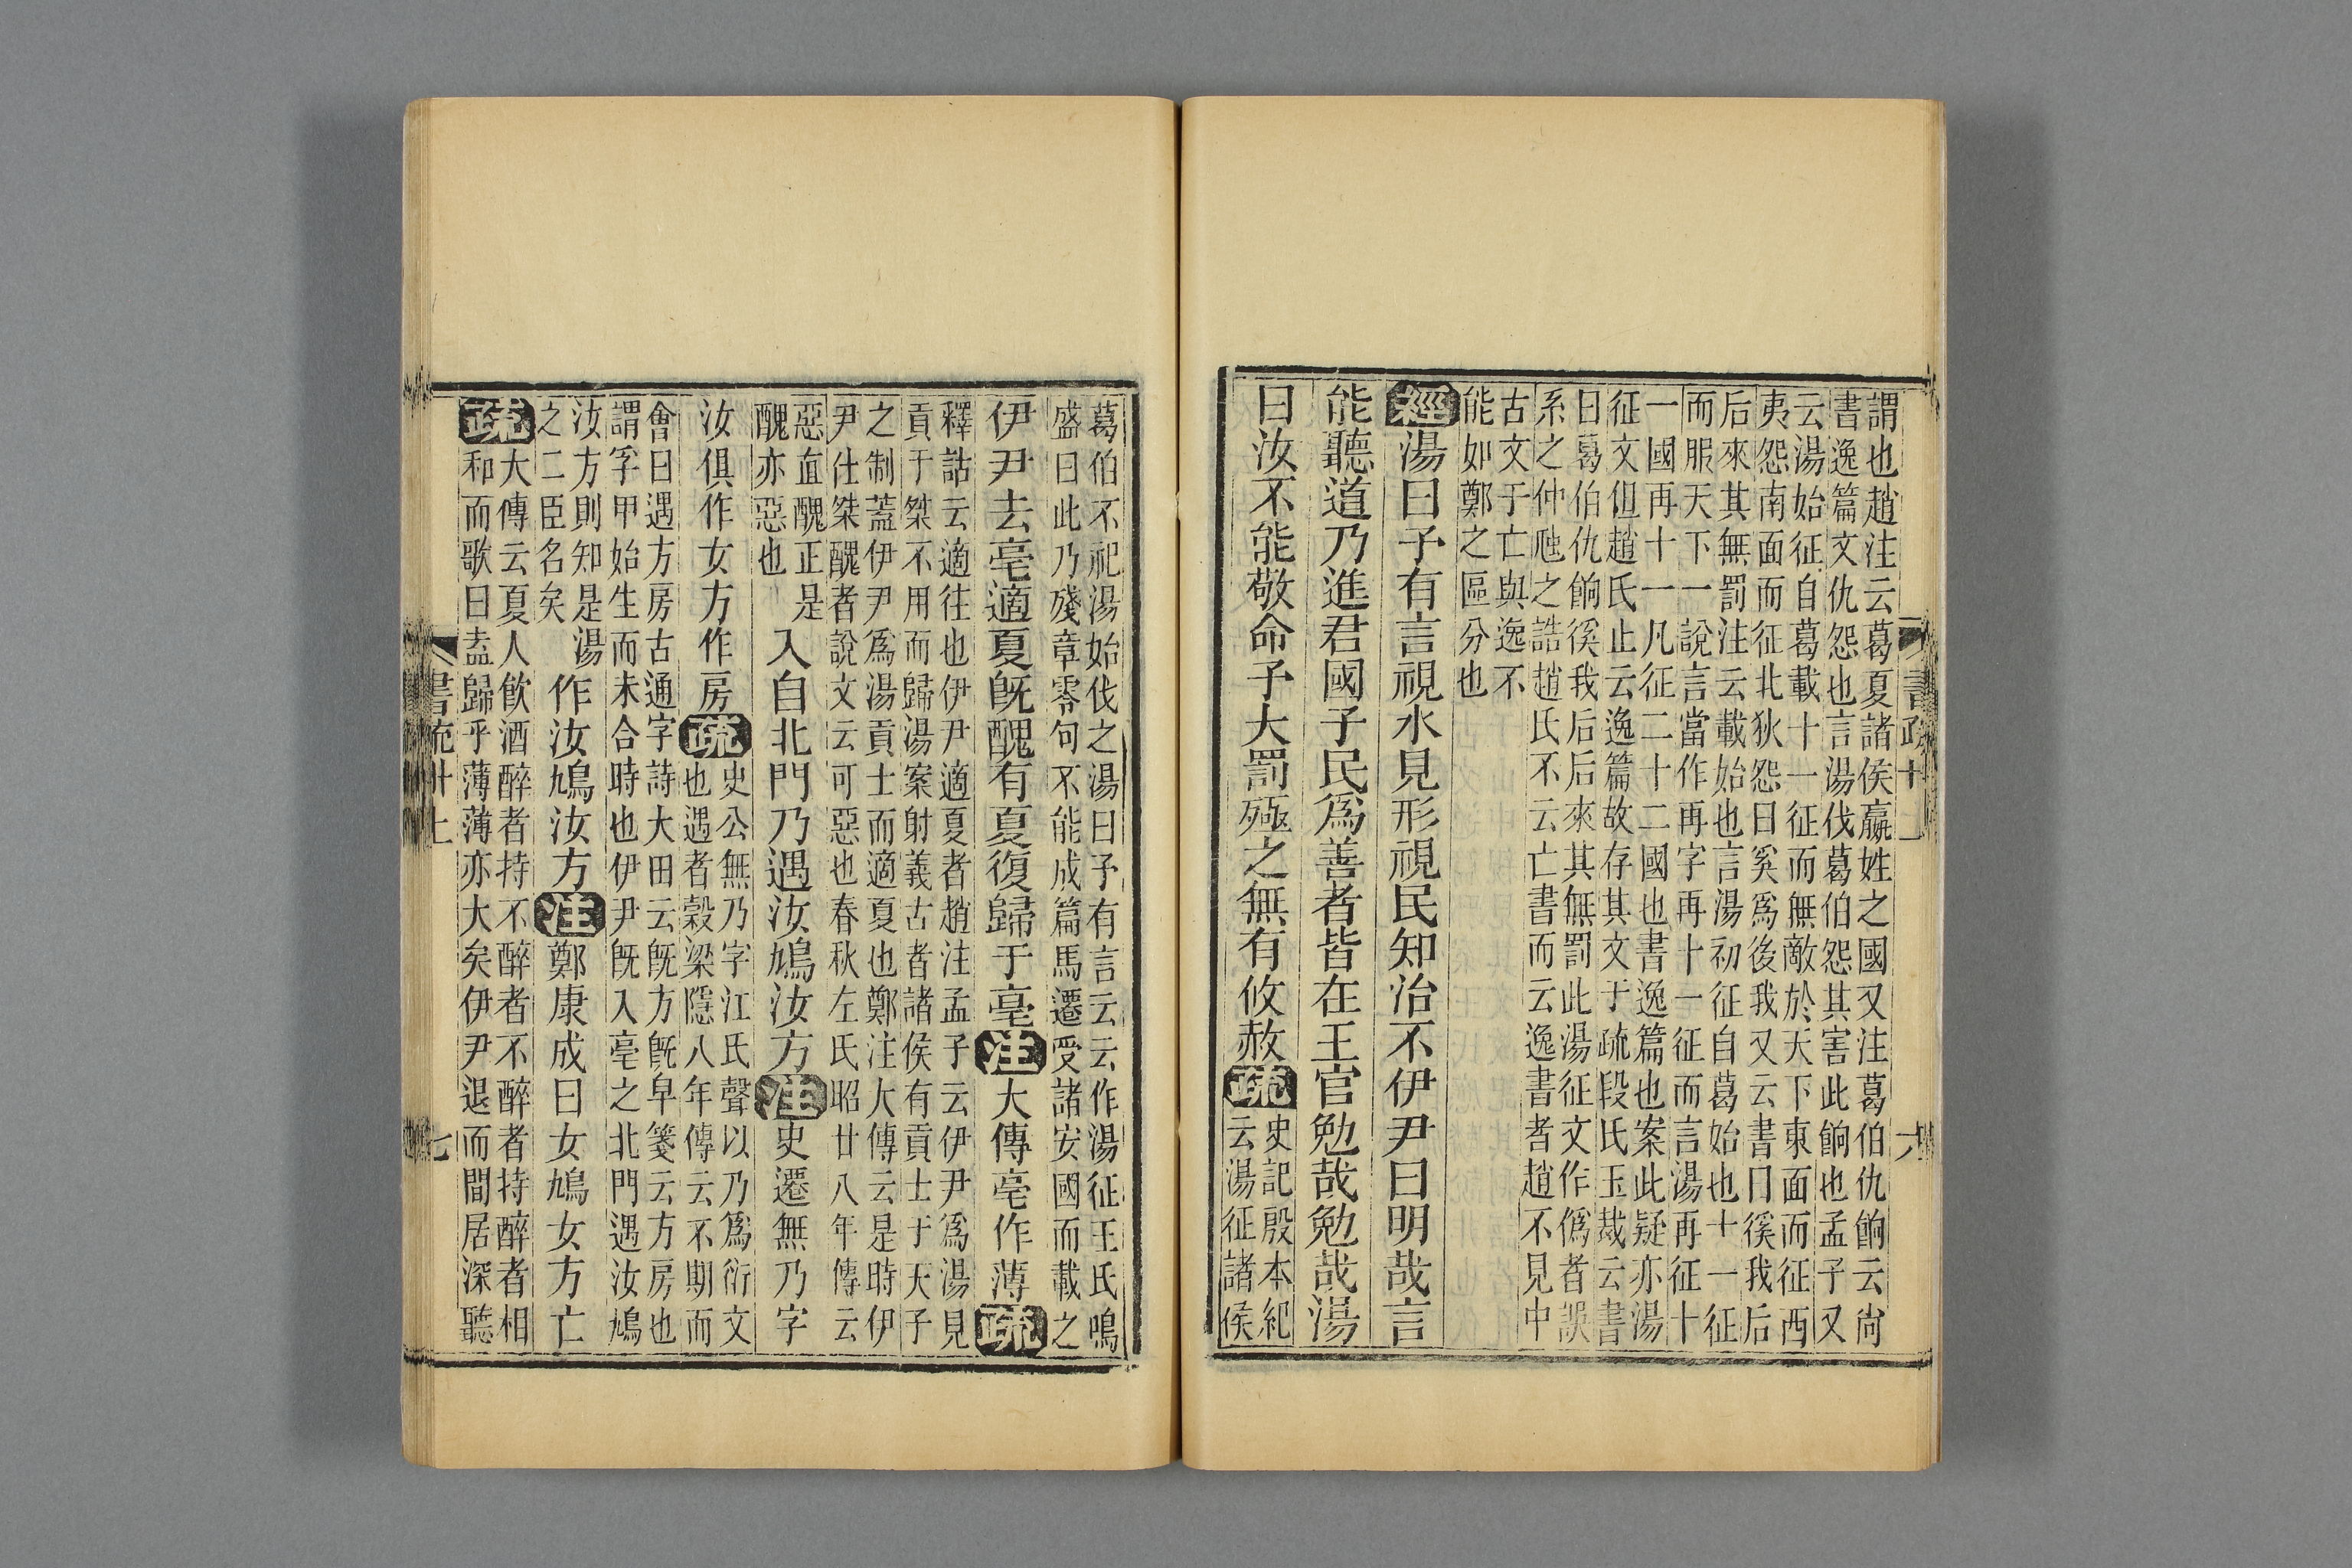 謂也趙注云葛夏諸侯嬴姓之國又注葛伯仇餉云尙
書逸篇文仇怨也言湯伐葛伯怨其害此餉也孟子又
云湯始征自葛載十一征而無敵於天下東面而征西
夷怨南面而征北狄怨曰奚爲後我又云書曰徯我后
后來其無罰注云載始也言湯初征自葛始也十一征
而服天下一說言當作再字再十一征而言湯再征十
一國再十一凡征二十二國也書逸篇也案此疑亦湯
征文但趙氏止云逸篇故存其文于疏段氏玉裁云書
曰葛伯仇餉徯我后后來其無罰此湯征文作僞者誤
系之仲虺之誥趙氏不云亡書而云逸書者趙不見中
古文于亡與逸不
能如鄭之區分也
經湯曰予有言視水見形視民知治不伊尹曰明哉言
能聽道乃進君國子民爲善者皆在王官勉哉勉哉湯
曰汝不能敬命予大罰殛之無有攸赦疏
史記殷本紀
云湯征諸侯
葛伯不祀湯始伐之湯曰予有言云云作湯征王氏鳴
盛曰此乃殘章零句不能成篇馬遷受諸安國而載之
伊尹去亳適夏旣醜有夏復歸于亳注大傳亳作薄疏
釋詁云適往也伊尹適夏者趙注孟子云伊尹爲湯見
貢于桀不用而歸湯案射義古者諸侯有貢士于天子
之制蓋伊尹爲湯貢士而適夏也鄭注大傳云是時伊
尹仕桀醜者說文云可惡也春秋左氏昭廿八年傳云
惡直醜正是
醜亦惡也
入自北門乃遇汝鳩汝方注史遷無乃字
汝俱作女方作房疏
史公無乃字江氏聲以乃爲衍文
也遇者穀梁隱八年傳云不期而
會曰遇方房古通字詩大田云旣方旣皁箋云方房也
謂孚甲始生而未合時也伊尹旣入亳之北門遇汝鳩
汝方則知是湯
之二臣名矣
作汝鳩汝方注鄭康成曰女鳩女方亡
疏
大傳云夏人飮酒醉者持不醉者不醉者持醉者相
和而歌曰盍歸乎薄薄亦大矣伊尹退而閒居深聽